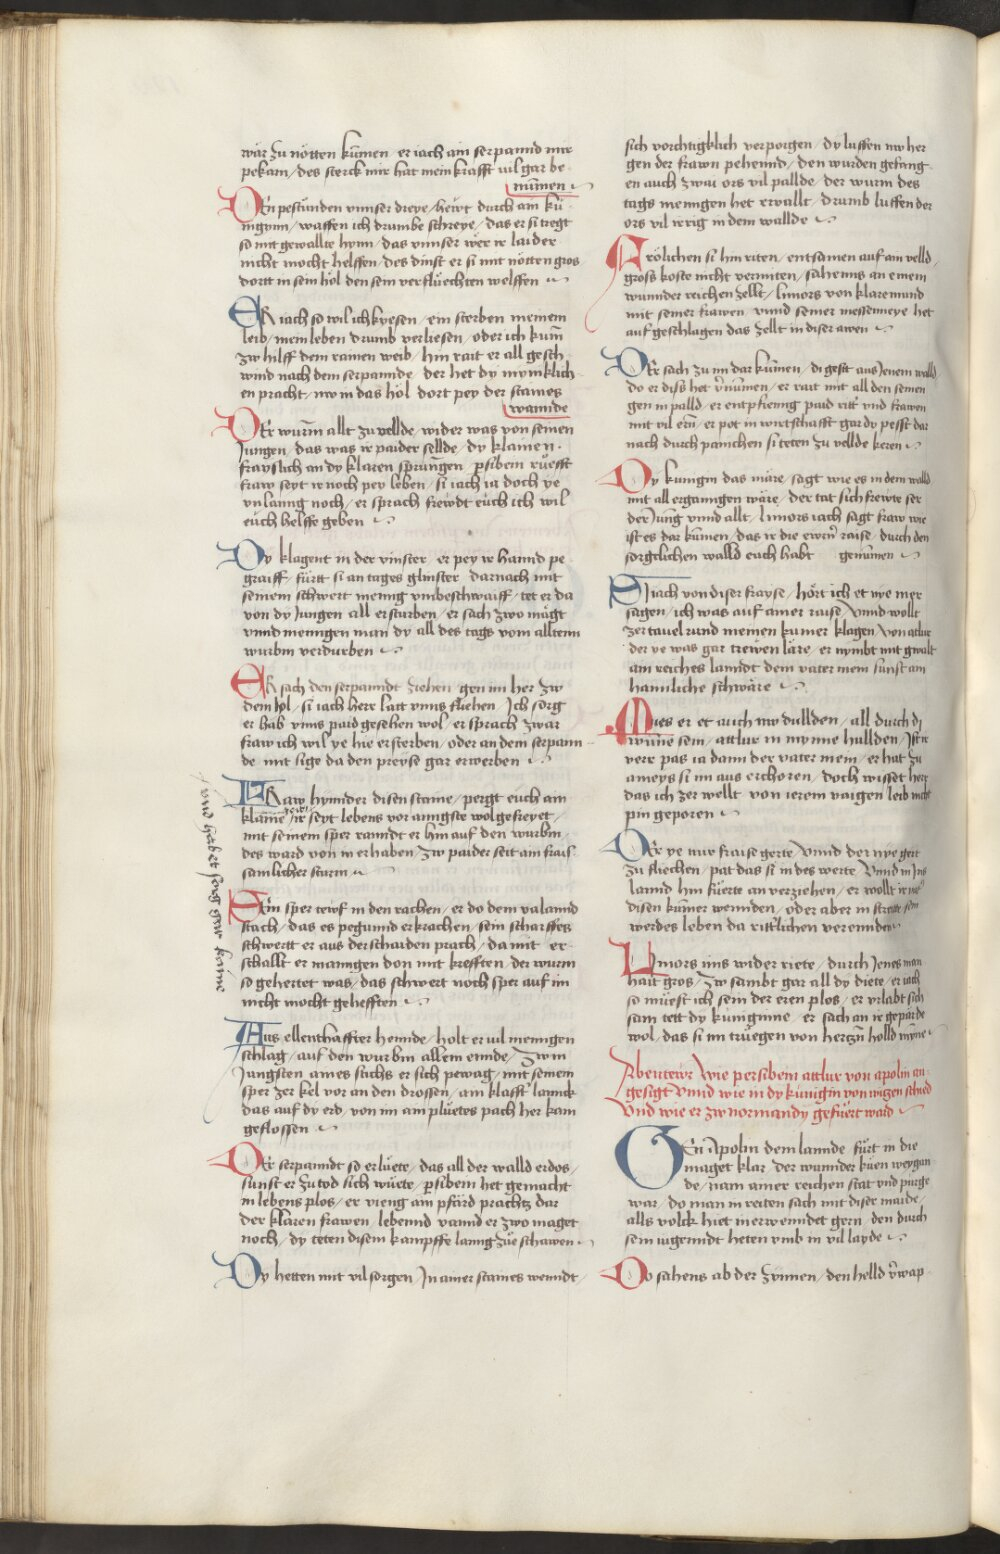 wär zu nötten kumen / er iach ain serpannd mir
pekam / des sterck mir hat mein krafft vil gar be
numen
DEn pestunden vnnser dreye / hewt durch ain kü
nigynn / waffen ich drumbe schreye / das er si tregt
so mit gewallte hynn / das vnnser wer ir laider
nicht mocht helffen / des dinst er si mit nötten gros
dortt in sein höl den sein verfluechten welffen
ER iach so wil ich kyesen / ein sterben meinem
leib / mein leben drumb verliesen / oder ich kum
zw hilff dem rainen weib / hin rait er all gesch
wind nach dem serpannde / der het dy mynniklich
en pracht / nw in das höl dort pey der staines
wannde
DEr wurm allt zu vellde / wider was von seinen
Jungen / das was ir paider sellde / dy klainen
frayslich an dy klaren sprungen / persibein rueefft
fraw seyt ir noch pey leben / si iach ia doch ye
vnlanng noch / er sprach frewdt euch ich wil
euch helffe geben
DY klagent in der vinster / er pey ir hannd pe
graiff / fürtt si an tages glinster / darnach mit
seinem schwert menig vmbeschwaiff / tet er da
von dy Jungen all ersturben / er sach zwo mägt
vnnd mennigen man dy all des tags vom alltenn
wurbm verdurben
ER sach den serpanndt ziehen / gen im her zw
dem hol / si iach herr latt vnns fliehen / Ich sorg
er hab vnns paid gesehen wol / er sprach zwar
fraw ich wil ye hie ersterben / oder an dem serpann
de mit sige da den preyse gar erwerben
FRaw hynnder disen staine / pergt euch am
klaine / ir seyt lebens vor anngste wol gefreyet /
mit seinem sper ranndt er hin auf den wurbm
des ward von in erhaben / zw paider seit ain frais
samlicher sturm
SEin sper tewf in den rachen / er do dem valannd
stach / das es pegund erkrachen / sein scharffes
schwertt er aus der schaiden prach / da mit er
schallt er manngen don mit krefften / der wurm
so gehertet was / das schwert noch sper auf im
nicht mocht gehefften
AUs ellenthaffter hennde / holt er vil mennigen
schlag / auf den wurbm allem ennde / zwm
Jungsten aines stichs er sich pewag / mit seinem
sper zer kel vor an den drossen / ain klafft lannck
das auf dy erd / von im ain pluetes pach her kam
geflossen
DEr serpanndt so erluete / das all der walld erdos /
sunst er zu tod sich wuete / persibein het gemacht
in lebens plos / er vieng ain pfärd prachtz dar
der klaren frawen / lebennd vannd er zwo maget
noch / dy teten disem kampffe lanng zue schawen
DY hetten mit vil sorgen / In ainer staines wenndt /
sich vorchtigklich verporgen / dy luffen nw her
gen der frawn pehennd / den wurden gefang
en auch zwai ors vil pallde / der wurm des
tags mennigen het ervallt / drumb luffen der
ors vil irrig in dem wallde
FRölichen si hin riten / entsamen auf ain velld
gross koste nicht vermiten / sahenns an einem
wunnder reichen zellt / limors von klaremund
mit seiner frawen / vnnd seiner messeneye het
auf geschlagen das zellt in diser awen
DEr sach zu im dar kumen / di gesst aus Jenem walld
do er diss het vernumen / er rait mit all den seinen
gen in palld / er entpfieng paid ritter vnd frawen
mit vil ern / er pot in wirtschafft gar dy pesst dar
nach durch panichen si teten zu vellde keren
DY kunigin das märe / sagt wie es in dem walld
mit all erganngen wäre / der tat sich frewte ser
der Jung vnnd allt / limors iach sagt fraw wie
ist es dar kumen / das ir die ewrn raise / durch den
sorgclichen walld euch habt genumen
SI iach von diser frayse / hört ich et nye mer
sagen / ich was auf ainer raise / vnnd wollt
zer tauelrund meinen kumer klagen / von attlur
der ye was gar trewen läre / er nymbt mit gwalt
ain reiches lanndt dem vater mein sunst an
hainliche schwäre
MUes er et auch nw dullden / all durch di
wunne sein / attlur in mynne hullden / Ist ir
verr pas ia dann der vater mein / er hat zu
ameys si im aus erchoren / doch wisset herr
das ich zer wellt von ierem vaigen leib nicht
pin geporen
DEr ye nur fraise gerte / vnnd der nye gert
zu fliechen / pat das si in des werte / vnnd in Ins
lannd hin fuerte an verziehen / er wollt ir
disen kumer wennden / oder aber in streite sein
werdes leben da rittterlichen verennden
LImors ims wider riete / durch Jenes man
hait gros / zw sambt gar all dy diete / er iach
so müest ich sein der eren plos / er vrlabt sich
sam tett dy kuniginne / er sach an ir geparde
wol / das si im trüegen von hertzn holld mynne
Abentewr wie persibein attlur von apolin an
gesigt vnnd wie in dy kunigin von wigen schied
vnd wie er zw normandy gefuert ward
GEn Apolin dem lannde / fürt in die
maget klar / der wunnder kuen weygan
de / nam ainer reichen stat vnd purge
war / do man in reiten sach mit diser maide /
alls volck hiet in erwenndet gern / den durch
sein iugenndt heten vmb in vil layde
DO sahens ab der zynnen / den helld verwap